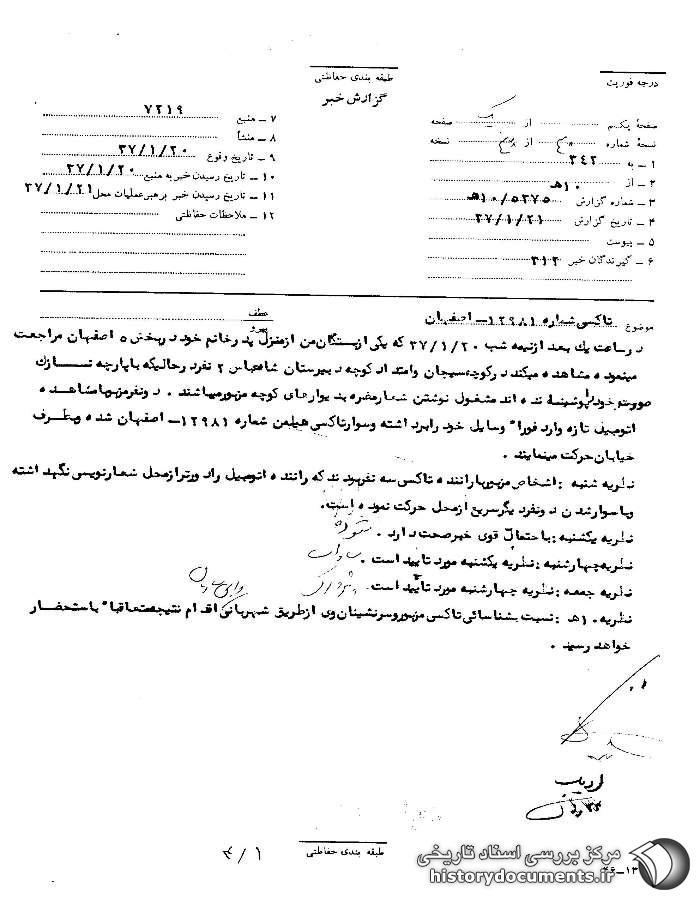 درجه فوریت
طبقه بندی حفاظتی
گزارش خبر
صفحهٔ یکم از یک صفحه
نسخهٔ شماره از نسخه
۱ ـ به ۳٤۲
۲ ـ از ۱۰هـ
۳ ـ شماره گزارش ۱۰/۵۲۷۵هـ
٤ ـ تاریخ گزارش ۳۷/۱/۲۱
۵ ـ پیوست
۶ ـ گیرندگان خبر ۳۱۲
۷ ـ منبع ۷۲۱۹
۸ ـ منشأ
۹ ـ تاریخ وقوع ۳۷/۱/۲۰
۱۰ ـ تاریخ رسیدن خبر به منبع ۳۷/۱/۲۰
۱۱ ـ تاریخ رسیدن خبر برهبر عملیات محل ۳۷/۱/۲۱
۱۲ ـ ملاحظات حفاظتی
موضوع تاکسی شماره ۱۲۹۸۱ ـ اصفهان
عطف
در ساعت یك بعد از نیمه شب ۳۷/۱/۲۰ که یکی از بستگان من از منزل پدر خانم خود در بخش ۵ اصفهان مراجعت
مینموده مشاهده میکند در کوچه سیچان وامتداد کوچه دبیرستان شاه عباس ۲ نفر در حالیکه با پارچه نازك
صورتخود را پوشینده اند مشغول نوشتن شعار مضره بدیوارهای کوچه مزبور میباشند . دو نفر مزبور با مشاهده
اتومبیل تازه وارد فوراً وسایل خود را برداشته وسوار تاکسی هیلمن شماره ۱۲۹۸۱ ـ اصفهان شده وبطرف
خیابان حرکت مینمایند .
نظریه شنبه : اشخاص مزبور با راننده تاکسی سه نفر بودند که راننده اتومبیل را دورتر از محل شعارنویسی نگهداشته
وبا سوار شدن دو نفر دیگر سریع از محل حرکت نموده است .
نظریه یکشنبه : با احتمال قوی خبر صحت دارد .
نظریه چهارشنبه : نظریه یکشنبه مورد تأیید است .
نظریه جمعه : نظریه چهارشنبه مورد تأیید است .
نظریه ۱۰هـ : نسبت بشناسائی تاکسی مزبور وسرنشینان وی از طریق شهربانی اقدام نتیجه متعاقباً باستحضار
خواهد رسید .
طبقه بندی حفاظتی
۴/۱
مرکز بررسی اسناد تاریخی
historydocuments.ir